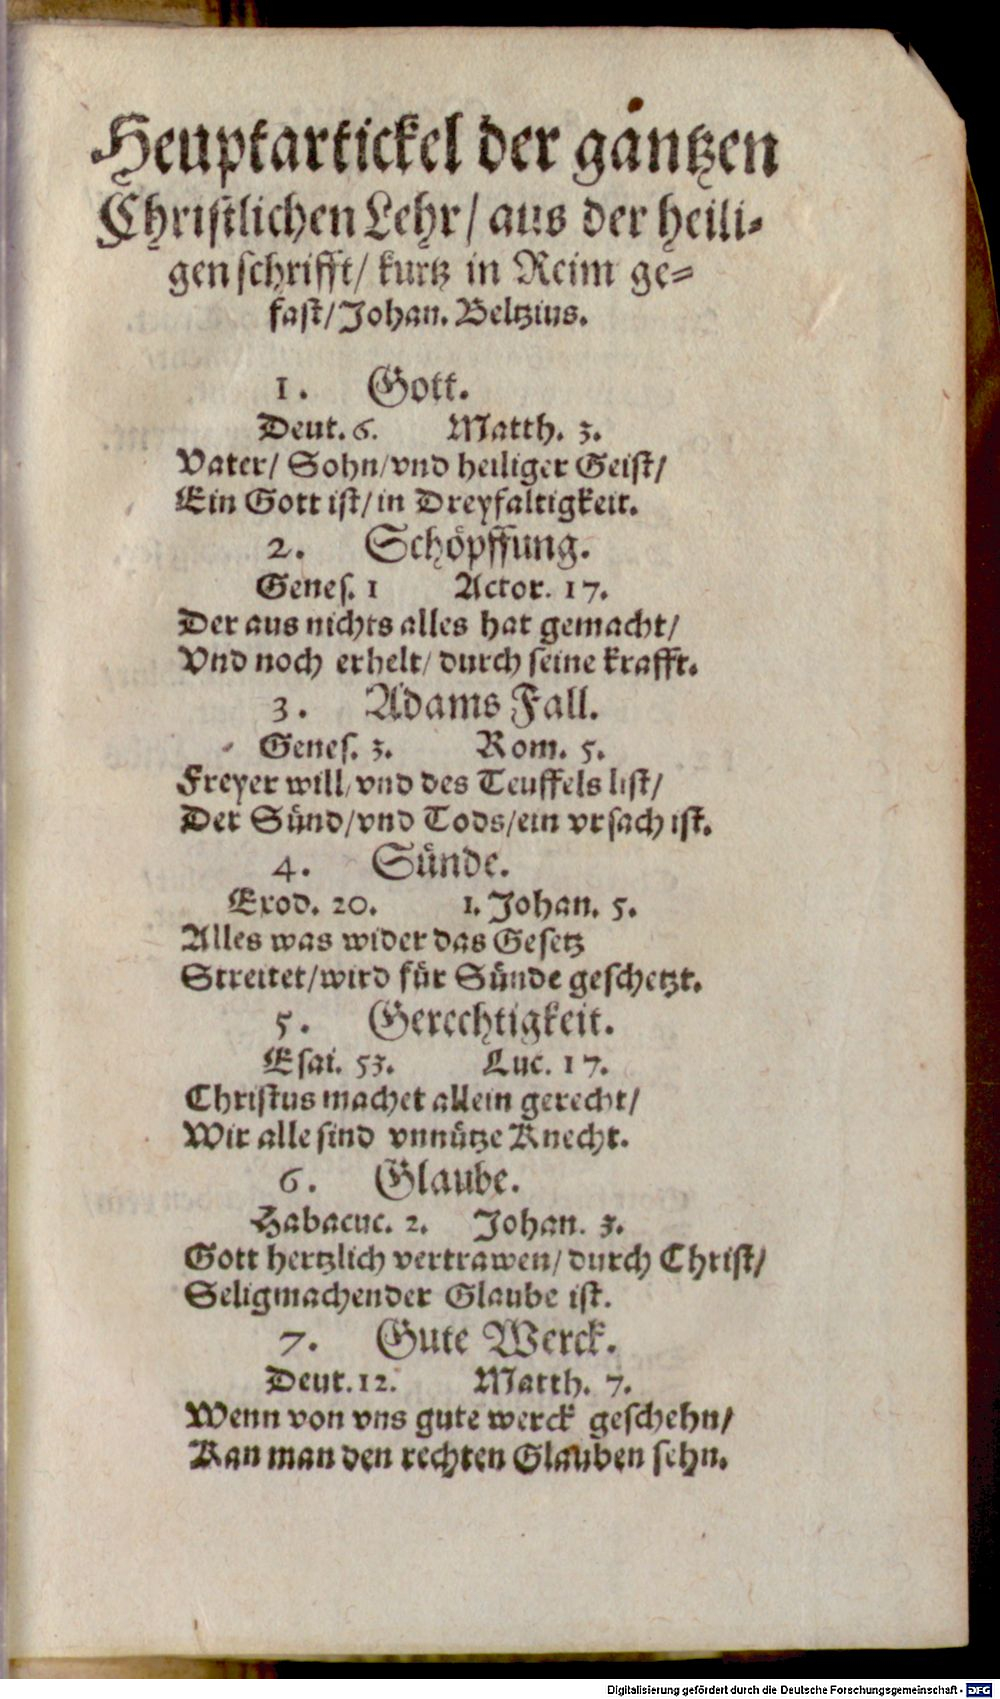 Heuptartickel der gantzen
Christlichen Lehr/ aus der heili-
gen schrifft/ kurtz in Reim ge-
fast/ Johan. Beltzius.
1. Gott.
Deut. 6. Matth. 3.
Vater/ Sohn/ vnd heiliger Geist/
Ein Gott ist/ in Dreyfaltigkeit.
2. Schöpffung.
Genes. 1 Actor. 17.
Der aus nichts alles hat gemacht/
Vnd noch erhelt/ durch seine krafft.
3. Adams Fall.
Genes. 3. Rom. 5.
Freyer will/ vnd des Teuffels list/
Der Sünd/ vnd Tods/ ein vrsach ist.
4. Sünde.
Exod. 20. 1. Johan. 5.
Alles was wider das Gesetz
Streitet/ wird für Sünde geschetzt.
5. Gerechtigkeit.
Esai. 53. Luc. 17.
Christus machet allein gerecht/
Wir alle sind vnnütze Knecht.
6. Glaube.
Habacuc. 2. Johan. 3.
Gott hertzlich vertrawen/ durch Christ/
Seligmachender Glaube ist.
7. Gute Werck.
Deut. 12. Matth. 7.
Wenn von vns gute werck geschehn/
Kan man den rechten Glauben sehn.
Digitalisierung gefördert durch die Deutsche Forschungsgemeinschaft - DFG